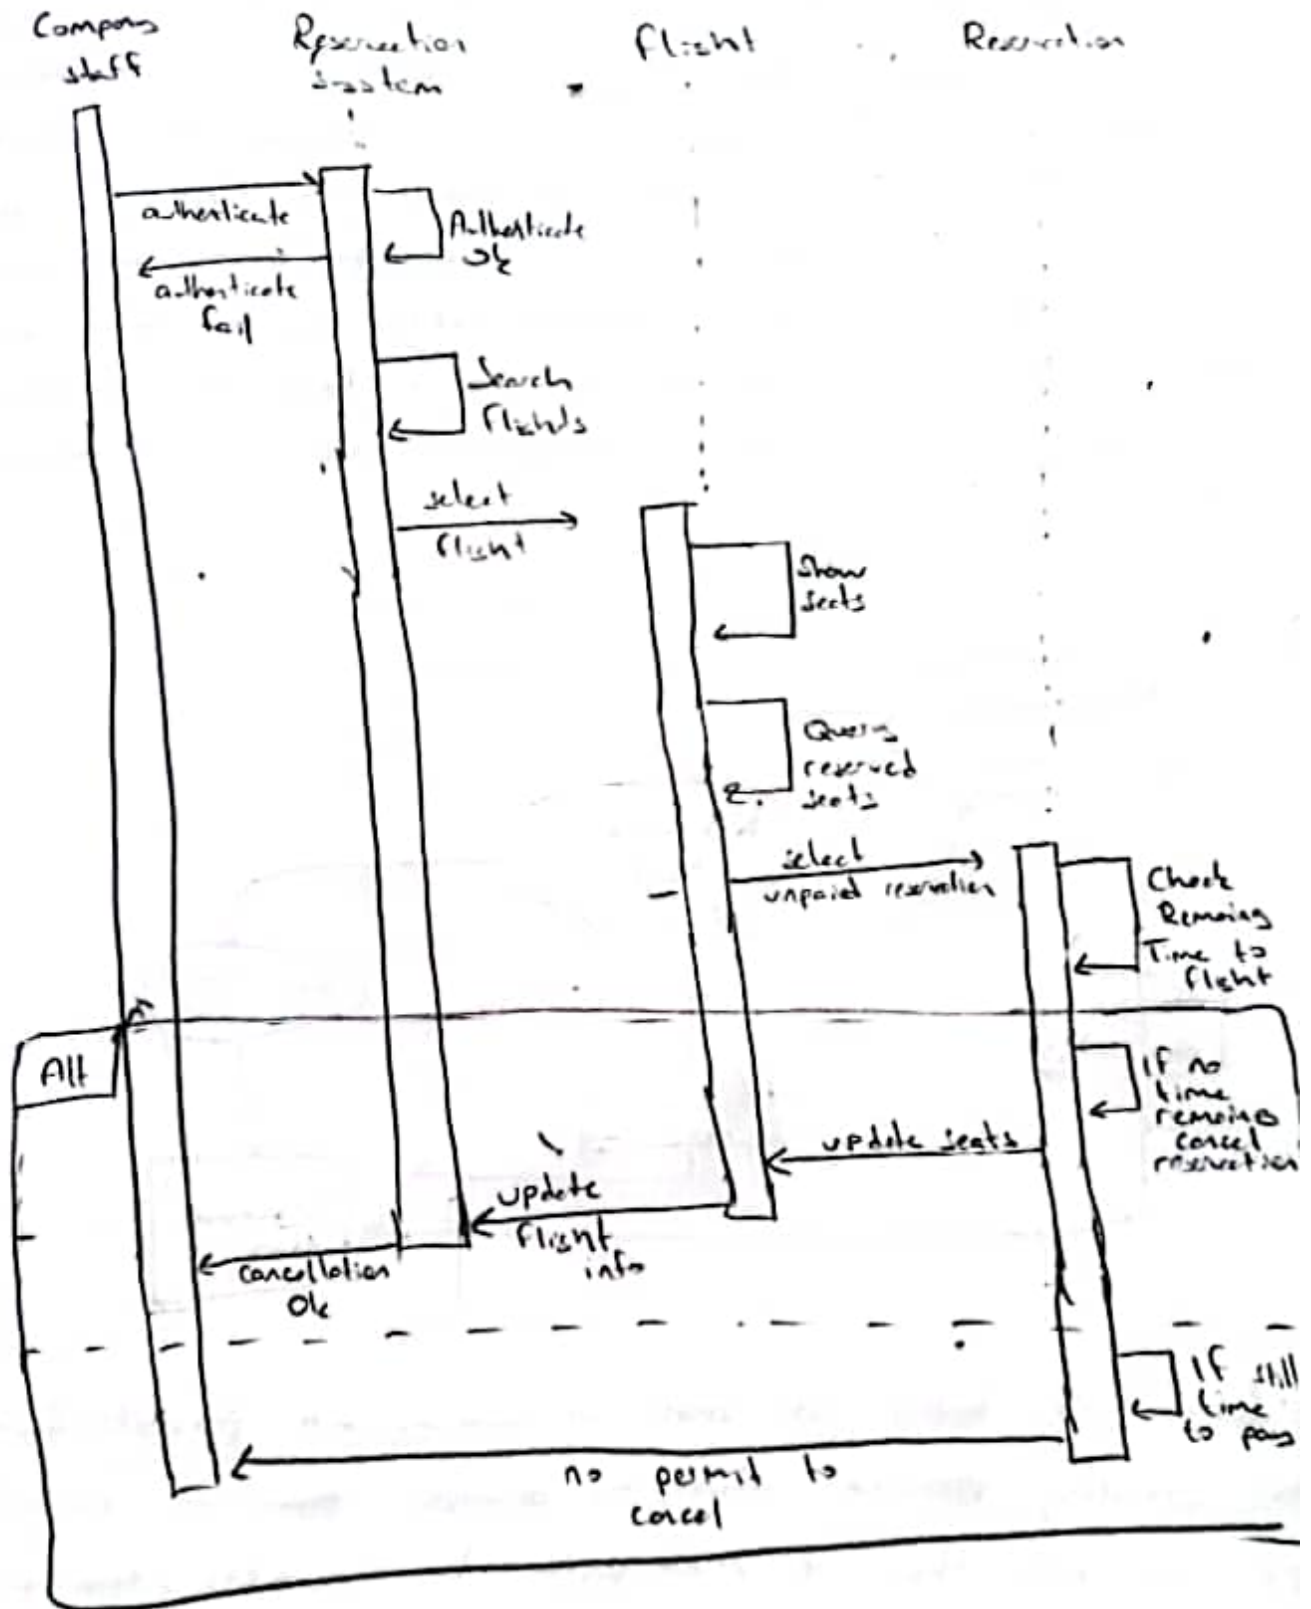 Company
staff
Reservation
system
Flight
Reservation
authenticate
Authenticate
Ok
authenticate
fail
Search
flights
select
flight
Show
seats
Query
reserved
seats
select
unpaid reservation
Check
Remaing
Time to
flight
Alt
If no
time
remaines
cancel
reservation
update seats
update
flight
info
cancellation
Ok
If still
time
to pay
no permit to
cancel